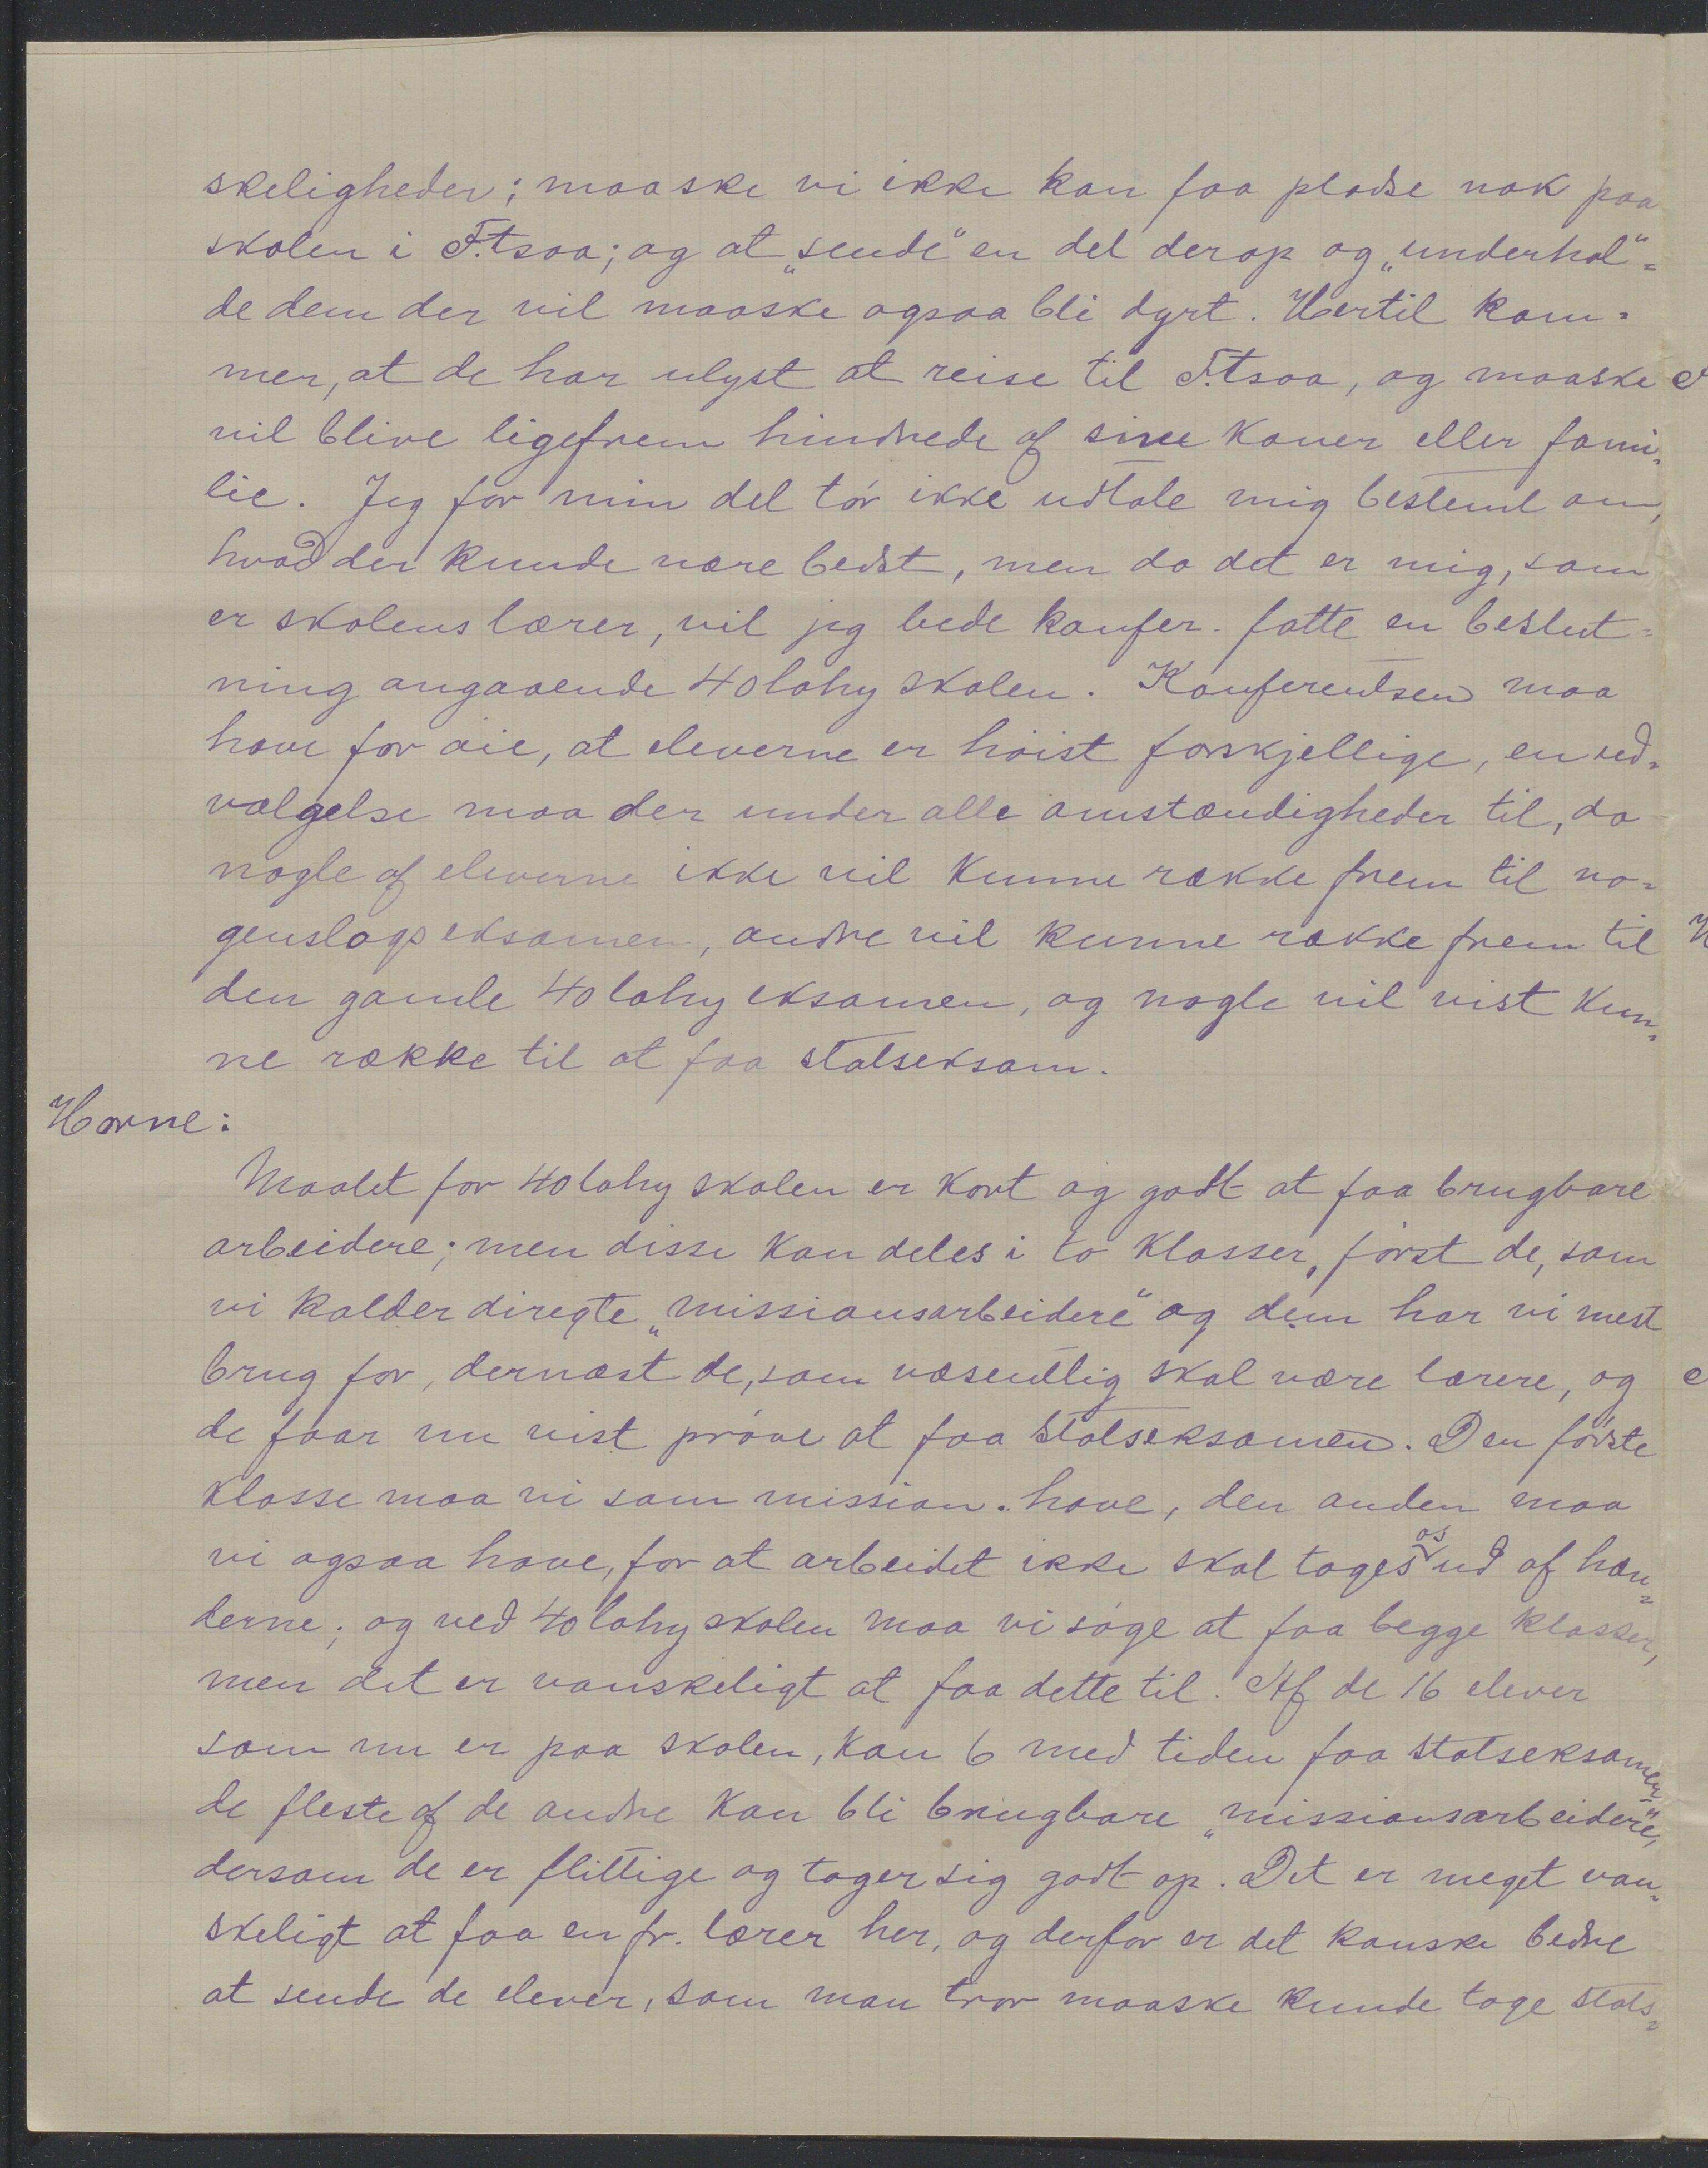 skeligheder; maaske vi ikke kan faa pladse nok paa
skolen i F.tsoa; og at „sende“ en del derop og „underhol“=
de dem der vil maaske ogsaa bli dyrt. Hertil kom=
mer, at de har ulyst at reise til F.tsoa, og maaske
vil blive ligefrem hindrede af sine koner eller fami=
lie. Jeg for min del tør ikke udtale mig bestemt om,
hvad der kunde være bedst, men da det er mig, som
er skolens lærer, vil jeg bede konfer. fatte en beslut=
ning angaaende 40 lahy skolen. Konferentsen maa
have for øie, at eleverne er høist forskjellige, en ud=
vælgelse maa der under alle omstændigheder til, da
nogle af eleverne ikke vil kunne række frem til no=
genslags eksamen, andre vil kunne række frem til
den gamle 40 lahy eksamen, og nogle vil vist kun=
ne række til at faa statseksam.
Horne:
Maalet for 40 lahy skolen er kort og godt at faa brugbare
arbeidere; men disse kan deles i to klasser, først de, som
vi kalder direqte „missionsarbeidere“ og dem har vi mest
brug for, dernæst de, som væsentlig skal være lærere, og
de faar nu vist prøve at faa statseksamen. Den første
klasse maa vi som mission. have, den anden maa
vi ogsaa have, for at arbeidet ikke skal tages os ud af hæn=
derne; og ved 40 lahy skolen maa vi søge at faa begge klasser,
men det er vanskeligt at faa dette til. Af de 16 elever
som nu er paa skolen, kan 6 med tiden faa statseksamen,
de fleste af de andre kan bli brugbare „missionsarbeidere“,
dersom de er flittige og tager sig godt op. Det er meget van=
skeligt at faa en fr. lærer her, og derfor er det kanske bedre
at sende de elever, som man tror maaske kunde tage stats=